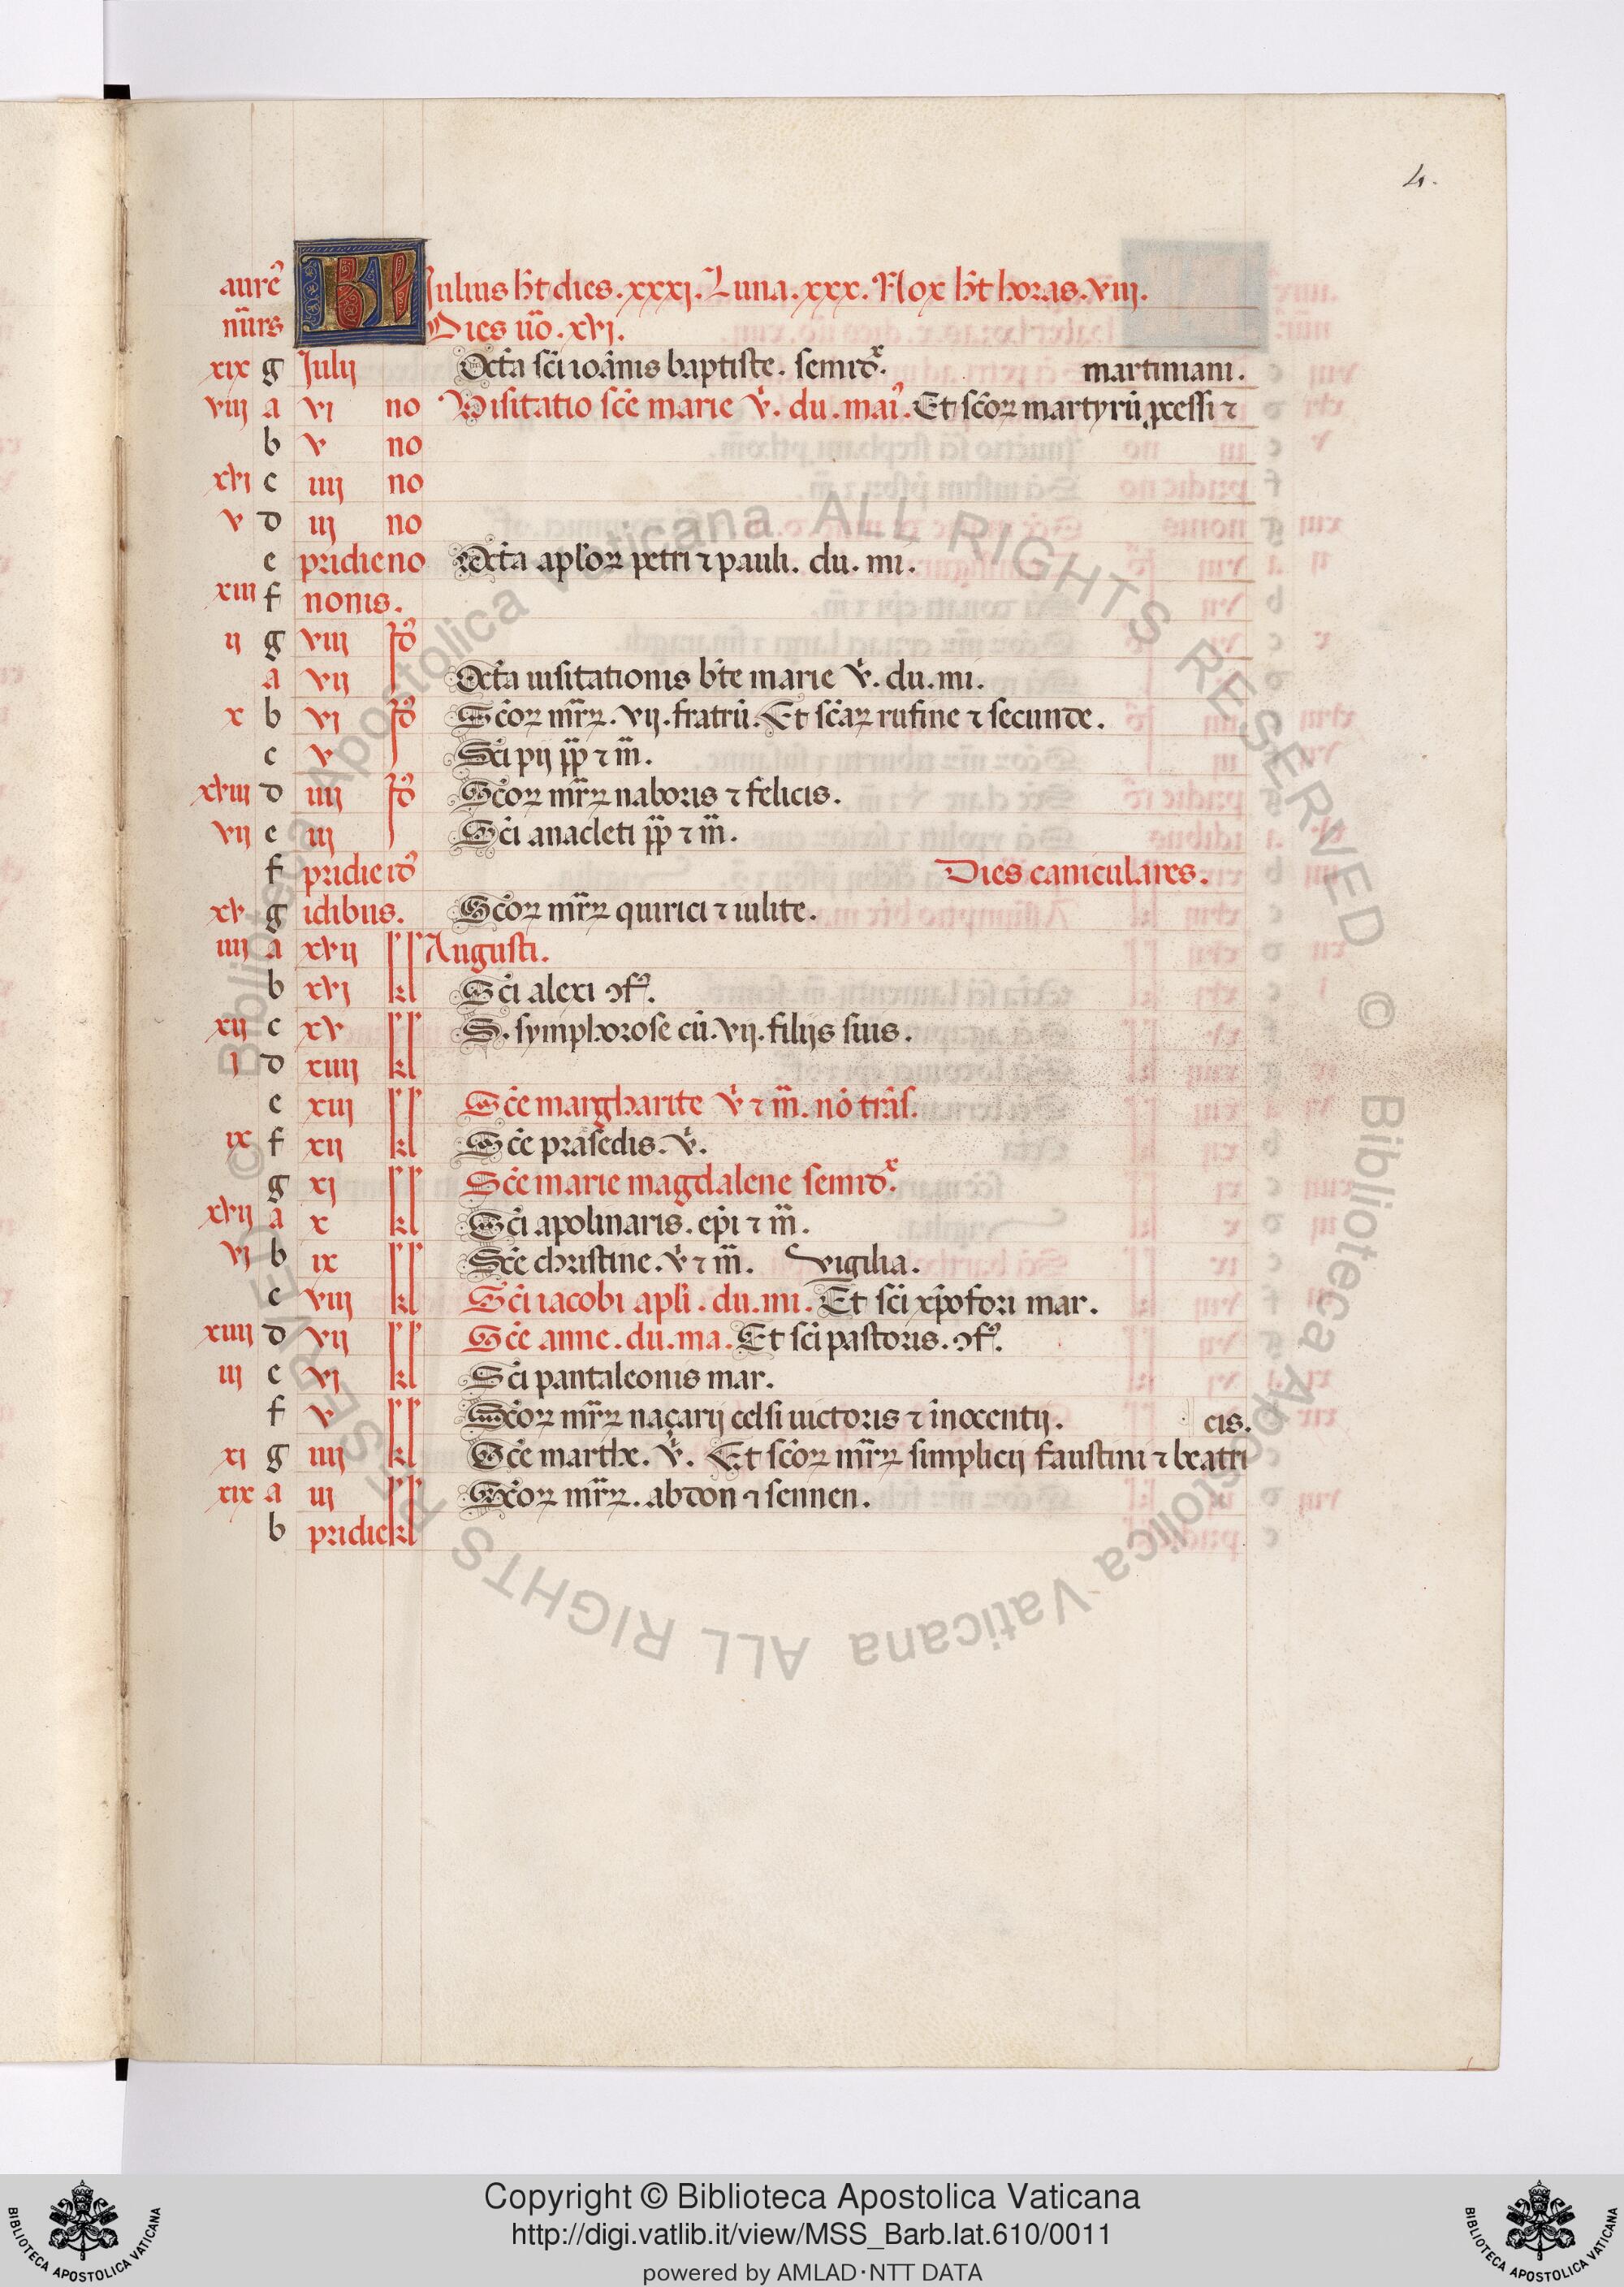 4.
aure᾽ KL Julius h̃t dies .xxxj. Luna .xxx. Nox h̃t horas .viij.
nũrs Dies ũo .xvj.
xix g Julij Octa᷒ sc̃i ioãnis baptiste. semid᷒x. martiniani.
viij a vj no Visitatio sc̃e marie v̾. du. mai᾽. Et sc̃oꝝ martyrũ ꝓcessi ⁊
b v no
xvj c iiij no
v d iij no
e pridie no Octã apl̃oꝝ petri ⁊ pauli. du. mi.
xiij f nonis.
ij g viij Id᾽
a vij Octã uisitationis bt̃e marie v̾. du. mi.
x b vj Id᾽ Sc̃oꝝ mr̃ꝝ .vij. fratrũ. Et sc̃aꝝ rufine ⁊ secunde.
c v Sc̃i pij pp̃ ⁊ m̃.
xviij d iiij Id᾽ Sc̃oꝝ mr̃ꝝ naboris ⁊ felicis.
vij e iij Sc̃i anacleti pp̃ ⁊ m̃.
f pridie id᾽ Dies caniculares.
xv g idibus. Sc̃oꝝ mr̃ꝝ quirici ⁊ iulite.
iiij a xvij Augusti.
b xvj kl Sc̃i alexi ↄf᾽.
xij c xv S. symphorose cũ .vij. filijs suis.
j d xiiij kl
e xiij Sc̃e margharite v̾ ⁊ m̃. nõ trãs.
ix f xij kl Sc̃e prasedis. v̾.
g xj Sc̃e marie magdalene semid᷒x.
xvij a x kl Sc̃i apolinaris. ep̃i ⁊ m̃.
vj b ix Sc̃e christine. v̾ ⁊ m̃. vigilia.
c viij kl Sc̃i iacobi apl̃i. du. mi. Et sc̃i xp̃ofori mar.
xiiij d vij Sc̃e anne. du. ma. Et sc̃i pastoris. ↄf᾽.
iij e vj kl Sc̃i pantaleonis mar.
f v Sc̃oꝝ mr̃ꝝ naçarij celsi uictoris ⁊ inocentij. cis.
xj g iiij kl Sc̃e marthe. v̾. Et sc̃oꝝ mr̃ꝝ simplicij faustini ⁊ beatri
xix a iij Sc̃oꝝ mr̃ꝝ. abdon ⁊ sennen.
b pridie kl
© Biblioteca Apostolica Vaticana ALL RIGHTS RESERVED © Biblioteca Apostolica Vaticana ALL RIGHTS RESERVED
Copyright © Biblioteca Apostolica Vaticana
http://digi.vatlib.it/view/MSS_Barb.lat.610/0011
powered by AMLAD·NTT DATA
BIBLIOTECA APOSTOLICA VATICANA
BIBLIOTECA APOSTOLICA VATICANA